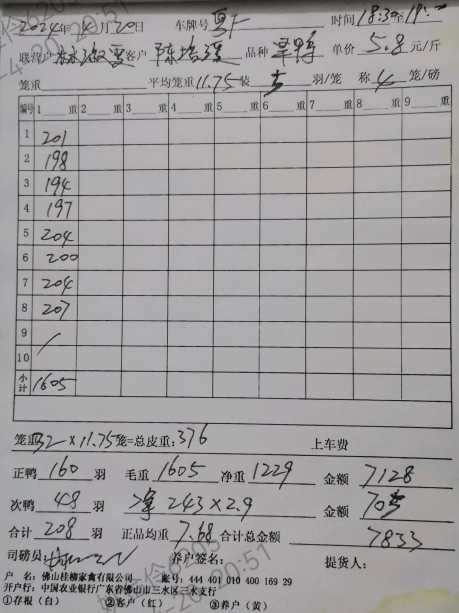 2024年4月20日 车牌号 时间 18:30至19:00
联营户 客户 陈培强 品种 单价 5.8 元/斤
笼重 平均笼重11.75装 羽/笼 称 4 笼/磅
编号 1 重 2 重 3 重 4 重 5 重 6 重 7 重 8 重 9 重
1 201
2 198
3 194
4 197
5 204
6 200
7 204
8 207
9 /
10
小计 1605
笼重32×11.75笼=总皮重:376 上车费
正鸭 160 羽 毛重 1605 净重 1229 金额 7128
次鸭 48 羽 净 243×2.9 金额 705
合计 208 羽 正品均重 7.68 合计总金额 7833
司磅员: 养户签名: 提货人:
户 名: 佛山桂柳家禽有限公司 账号: 444 401 010 400 169 29
开户行: 中国农业银行广东省佛山市三水区三水支行
①存根(白) ②客户(红) ③养户(黄)